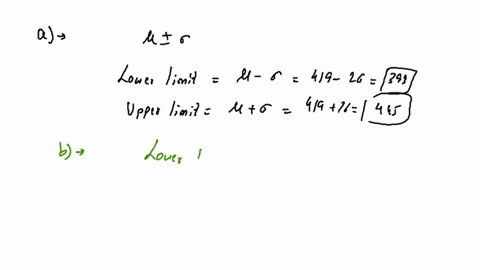 a)→ μ ± σ
Lower limit = μ - σ = 419 - 26 = 393
Upper limit = μ + σ = 419 + 26 = 445
b)→ Lower l